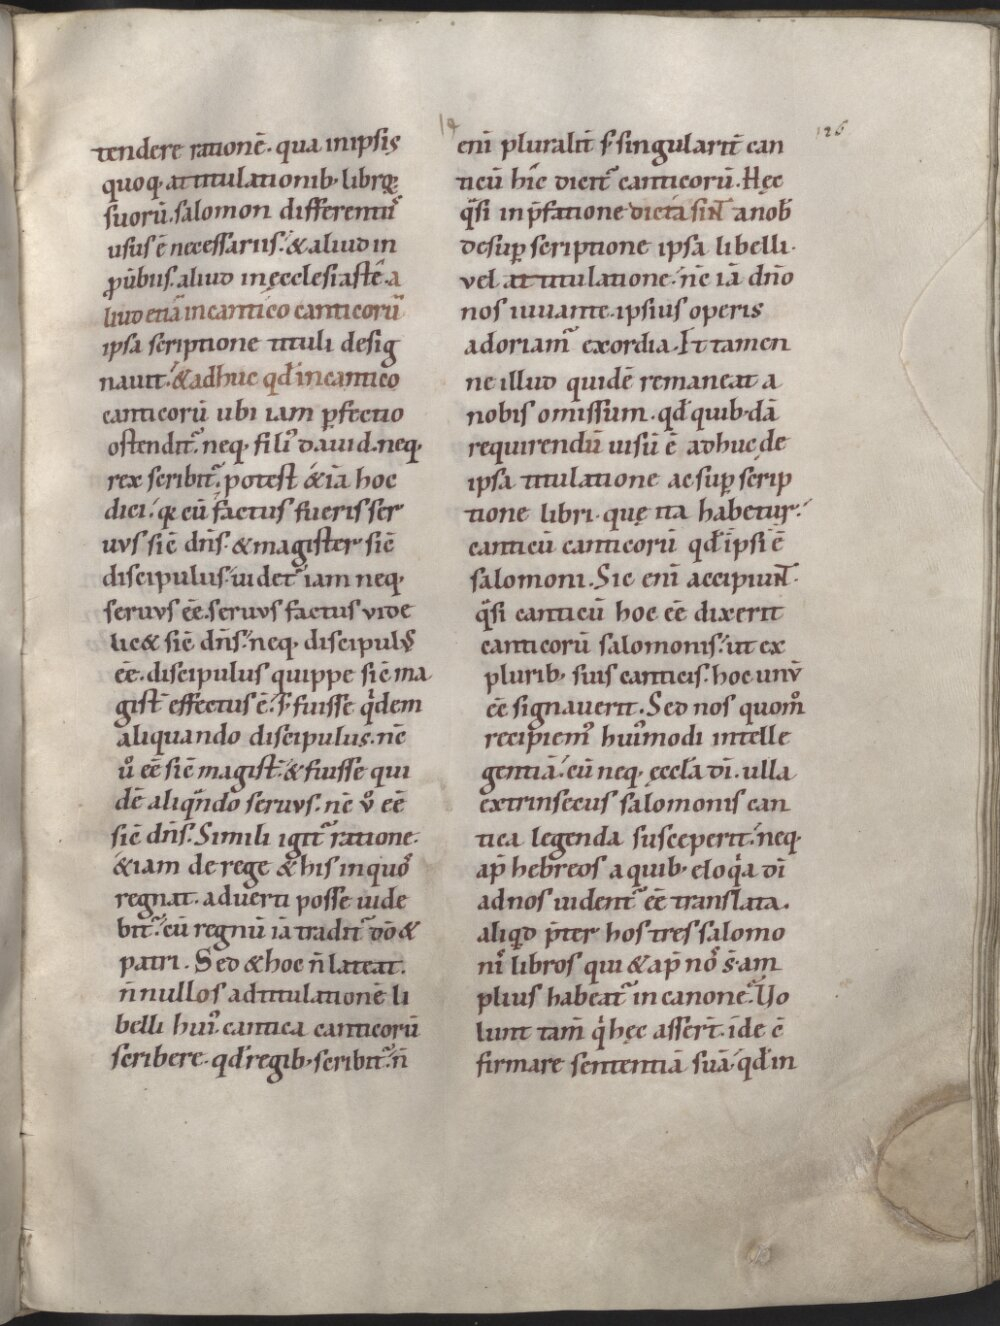 126
tendere rationē. qua in ipsis
quoq; attitulationib; librorꝫ
suorū. salomon differentiꝰ
usus ē necessariis. & aliud in
ꝓuͥbiis. aliud in ęcclesiastē. a
liud etiā in cantico canticorū
ipsa scriptione tituli desig
nauit. & adhuc qđ in cantico
canticorū ubi iam ꝑfectio
ostendit᷑. neq; filiꝰ dauid. neq;
rex scribit᷑. potest & iā hoc
dici. qꝛ cū factus fueris ser
uvs sic̄ dn̄s. & magister sic̄
discipulus. uidet᷑ iam neq;
seruvs ēē. seruvs factus vide
lic& sic̄ dn̄s. neq; discipulꝰ
ēē. discipulus quippe sic̄ ma
gist̄ effectus ē. s; fuisse qͥdem
aliquando discipulus. nc̄
uͦ ēē sic̄ magist̄. & fuisse qui
dē aliqͣndo seruvs. nc̄ uͦ ēē
sic̄ dn̄s. Simili igit᷑ ratione.
& iam de rege & his in quoꝰ
regnat. aduerti posse uide
bit᷑. cū regnū iā tradit᷑ dō &
patri. Sed & hoc n̄ lateat.
n̄nullos adtitulationē li
belli huiꝰ. cantica canticorū
scribere. qđ regib; scribit᷑. n̄
enī pluralit̄ s; singularit̄ can
ticū hīc dicit᷑ canticorū. Hęc
qͣsi in p̄fatione dicta sint a nob̄
de suꝑscriptione ipsa libelli.
vel attitulatione. nc̄ iā dn̄o
nos iuuante. ipsius operis
adoriam᷑ exordia. Et tamen
ne illud quidē remaneat a
nobis omissum. qđ quib;dā
requirendū uisū ē adhuc de
ipsa titulatione ac suꝑscrip
tione libri. quę ita habetur.
canticū canticorū qđ īpsi ē
salomoni. Sic enī accipiunt.
qͣsi canticū hoc ēē dixerit
canticorū salomonis. ut ex
plurib; suis canticis. hoc unū
ēē signauerit. Sed nos quomͦ
recipiemꝰ huiꝰmodi intelle
gentiā. cū neq; ęccl̄a dī. ulla
extrinsecus salomonis can
tica legenda susceperit. neq;
ap̄ hebreos a quib; eloqͣa dī
ad nos uident᷑ ēē translata.
aliqͥd p̄ter hos tres salomo
niꝰ libros qui & ap̄ noꝰ s̄. am
plius habeat᷑ in canone. Uo
lunt tam̄ qͥ hęc assert̄. īde ē
firmare sententiā suā. qđ in